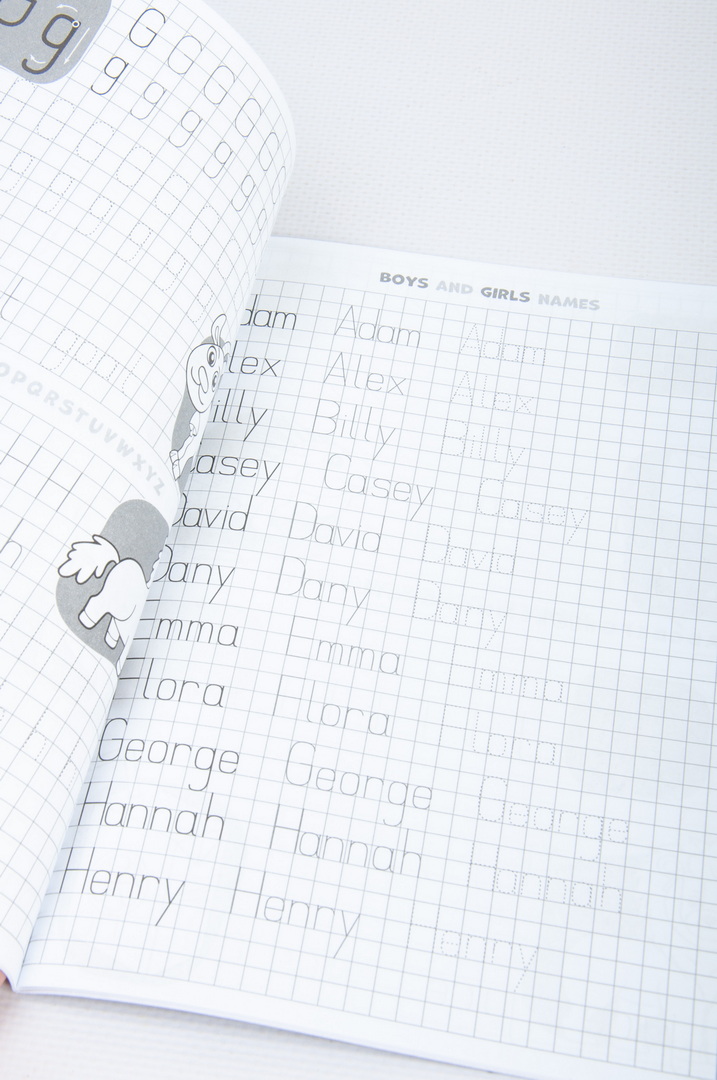 G g
G G G G G
g g g g g
goat
OPQRSTUVWXYZ
BOYS AND GIRLS NAMES
dam Adam Adam
lex Alex Alex
illy Billy Billy
asey Casey Casey
David David David
Dany Dany Dany
Emma Emma Emma
Flora Flora Flora
George George George
Hannah Hannah Hannah
Henry Henry Henry